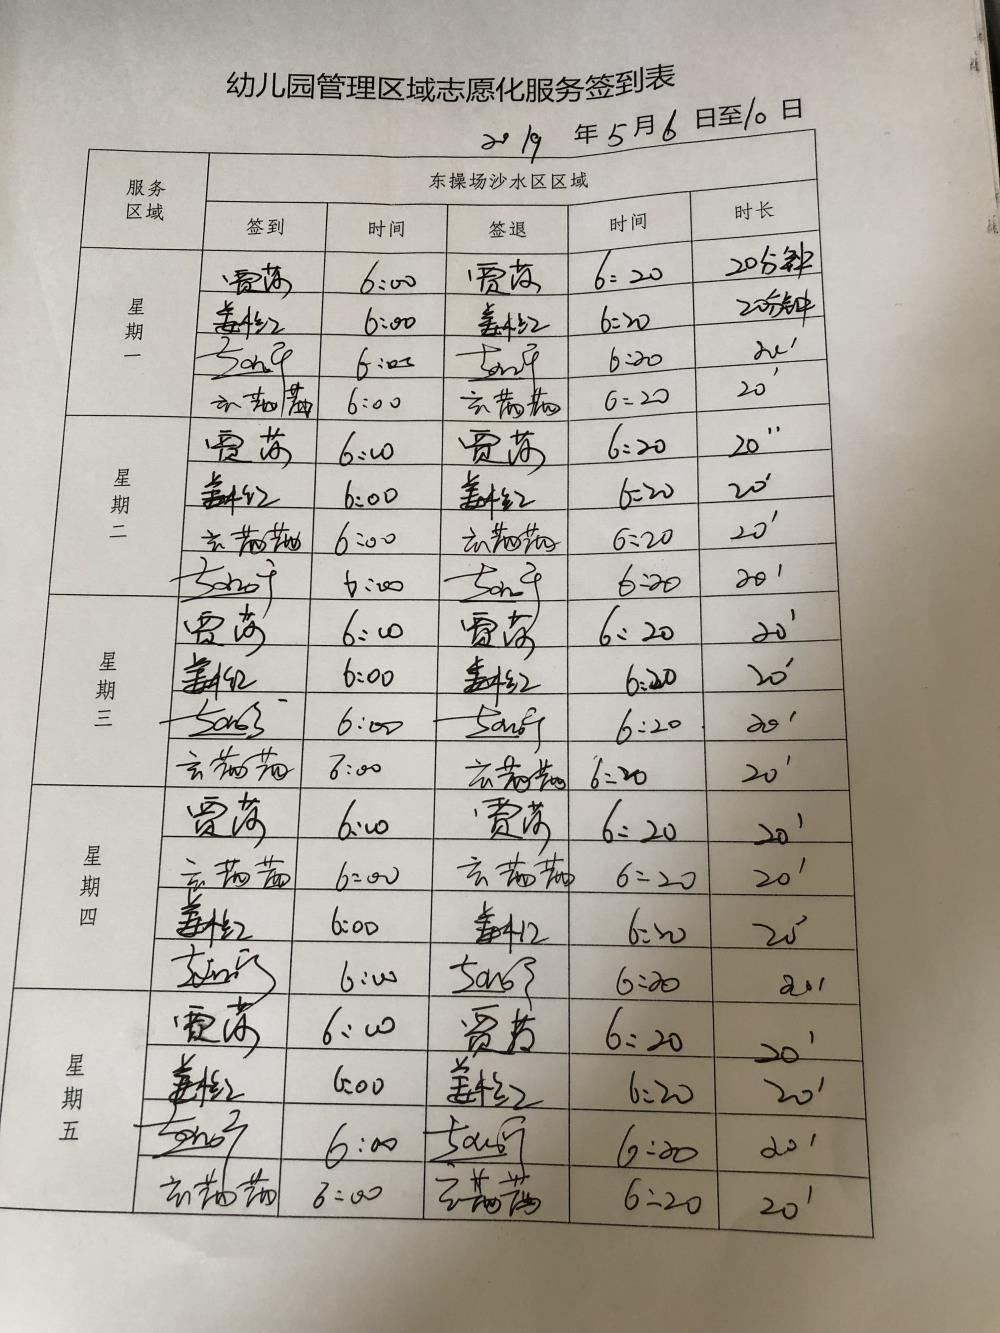 幼儿园管理区域志愿化服务签到表
2019 年 5 月 6 日至 10 日
服务区域 东操场沙水区区域
签到 时间 签退 时间 时长
星期一
贾 6:00 贾 6:20 20分钟
姜红 6:00 姜红 6:20 20分钟
6:00 6:20 20'
云茜茜 6:00 云茜茜 6:20 20'
星期二
贾 6:00 贾 6:20 20''
姜红 6:00 姜红 6:20 20'
云茜茜 6:00 云茜茜 6:20 20'
6:00 6:20 20'
星期三
贾 6:00 贾 6:20 20'
姜红 6:00 姜红 6:20 20'
6:00 6:20 20'
云茜茜 6:00 云茜茜 6:20 20'
星期四
贾 6:00 贾 6:20 20'
云茜茜 6:00 云茜茜 6:20 20'
姜红 6:00 姜红 6:20 20'
6:00 6:20 20''
星期五
贾 6:00 贾 6:20 20'
姜红 6:00 姜红 6:20 20'
6:00 6:20 20'
云茜茜 6:00 云茜茜 6:20 20'